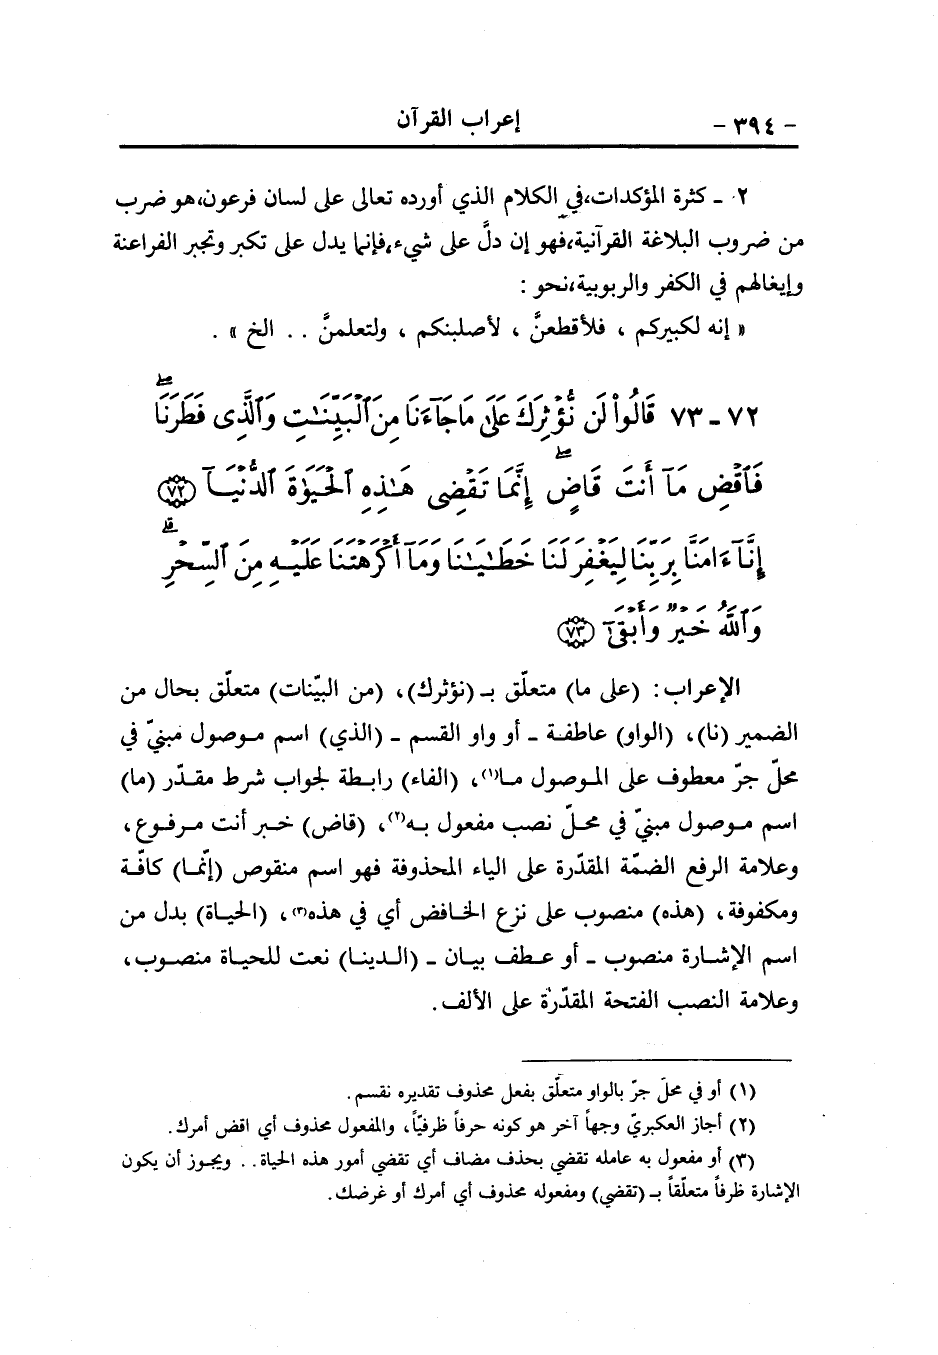 - ٣٩٤ -
إعراب القرآن
٢ ـ كثرة المؤكدات،في الكلام الذي أورده تعالى على لسان فرعون،هو ضرب
من ضروب البلاغة القرآنية،فهو إن دلَّ على شيء،فإنما يدل على تكبر وتجبر الفراعنة
وإيغالهم في الكفر والربوبية،نحو :
« إنه لكبيركم ، فلأقطعنَّ ، لأصلبنكم ، ولتعلمنَّ . . الخ » .
٧٢ ـ ٧٣ قَالُوا۟ لَن نُّؤْثِرَكَ عَلَىٰ مَا جَآءَنَا مِنَ ٱلْبَيِّنَـٰتِ وَٱلَّذِى فَطَرَنَا ۖ
فَٱقْضِ مَآ أَنتَ قَاضٍ ۖ إِنَّمَا تَقْضِى هَـٰذِهِ ٱلْحَيَوٰةَ ٱلدُّنْيَآ ﴿٧٢﴾
إِنَّآ ءَامَنَّا بِرَبِّنَا لِيَغْفِرَ لَنَا خَطَـٰيَـٰنَا وَمَآ أَكْرَهْتَنَا عَلَيْهِ مِنَ ٱلسِّحْرِ ۗ
وَٱللَّهُ خَيْرٌ وَأَبْقَىٰٓ ﴿٧٣﴾
الإعراب: (على ما) متعلّق بـ (نؤثرك)، (من البيّنات) متعلّق بحال من
الضمير (نا)، (الواو) عاطفة ـ أو واو القسم ـ (الذي) اسم موصول مبنيّ في
محلّ جرّ معطوف على الموصول ما(١)، (الفاء) رابطة لجواب شرط مقدّر (ما)
اسم موصول مبنيّ في محلّ نصب مفعول به(٢)، (قاض) خبر أنت مرفوع،
وعلامة الرفع الضمّة المقدّرة على الياء المحذوفة فهو اسم منقوص (إنّما) كافّة
ومكفوفة، (هذه) منصوب على نزع الخافض أي في هذه(٣)، (الحياة) بدل من
اسم الإشارة منصوب ـ أو عطف بيان ـ (الدينا) نعت للحياة منصوب،
وعلامة النصب الفتحة المقدّرة على الألف.
(١) أو في محلّ جرّ بالواو متعلّق بفعل محذوف تقديره نقسم.
(٢) أجاز العكبريّ وجهاً آخر هو كونه حرفاً ظرفيّاً، والمفعول محذوف أي اقض أمرك.
(٣) أو مفعول به عامله تقضي بحذف مضاف أي تقضي أمور هذه الحياة.. ويجوز أن يكون
الإشارة ظرفاً متعلّقاً بـ (تقضي) ومفعوله محذوف أي أمرك أو غرضك.